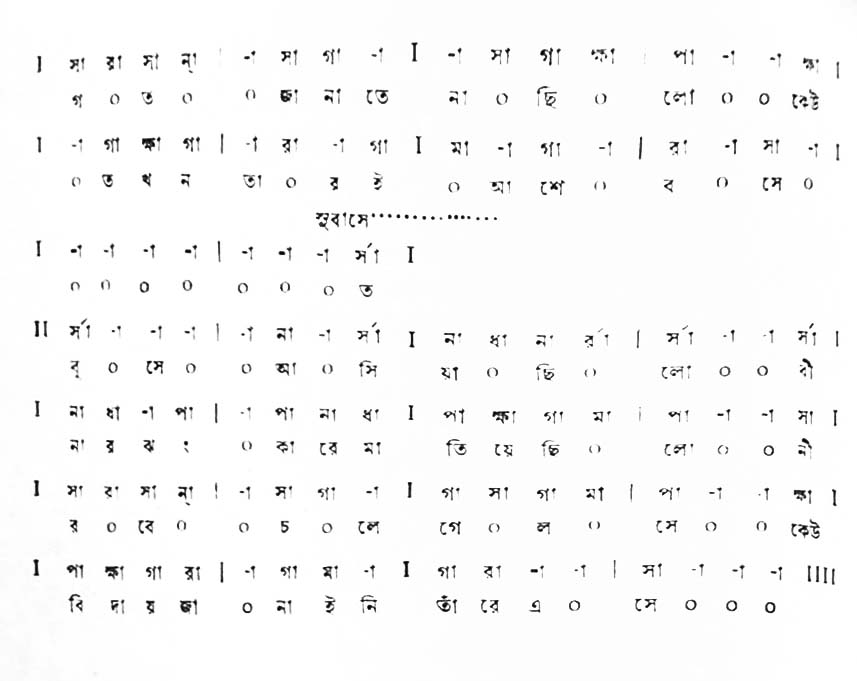 I সা রা সা ন্া | -া সা গা -া I -া সা গা ক্ষা | পা -া -া ক্ষা I
গ ০ ত ০ ০ জা না তে না ০ ছি ০ লো ০ ০ কেউ
I -া গা ক্ষা গা | -া রা -া গা I মা -া গা -া | রা -া সা -া I
০ ত খ ন তা ০ র ই ০ আ শে ০ ব ০ সে ০
সুবাসে··············
I -া -া -া -া | -া -া -া র্সা I
০ ০ ০ ০ ০ ০ ০ ত
II র্সা -া -া -া | -া না -া র্সা I না ধা না র্রা | র্সা -া -া র্সা I
বু ০ সে ০ ০ আ ০ সি য়া ০ ছি ০ লো ০ ০ বী
I না ধা -া পা | -া পা না ধা I পা ক্ষা গা মা | পা -া -া সা I
না র ঝ ং ০ কা রে মা তি য়ে ছি ০ লো ০ ০ নী
I সা রা সা ন্া | -া সা গা -া I গা সা গা মা | পা -া -া ক্ষা I
র ০ বে ০ ০ চ ০ লে গে ০ ল ০ সে ০ ০ কেউ
I পা ক্ষা গা রা | -া গা মা -া I গা রা -া -া | সা -া -া -া IIII
বি দা য় জা ০ না ই নি তাঁ রে এ ০ সে ০ ০ ০